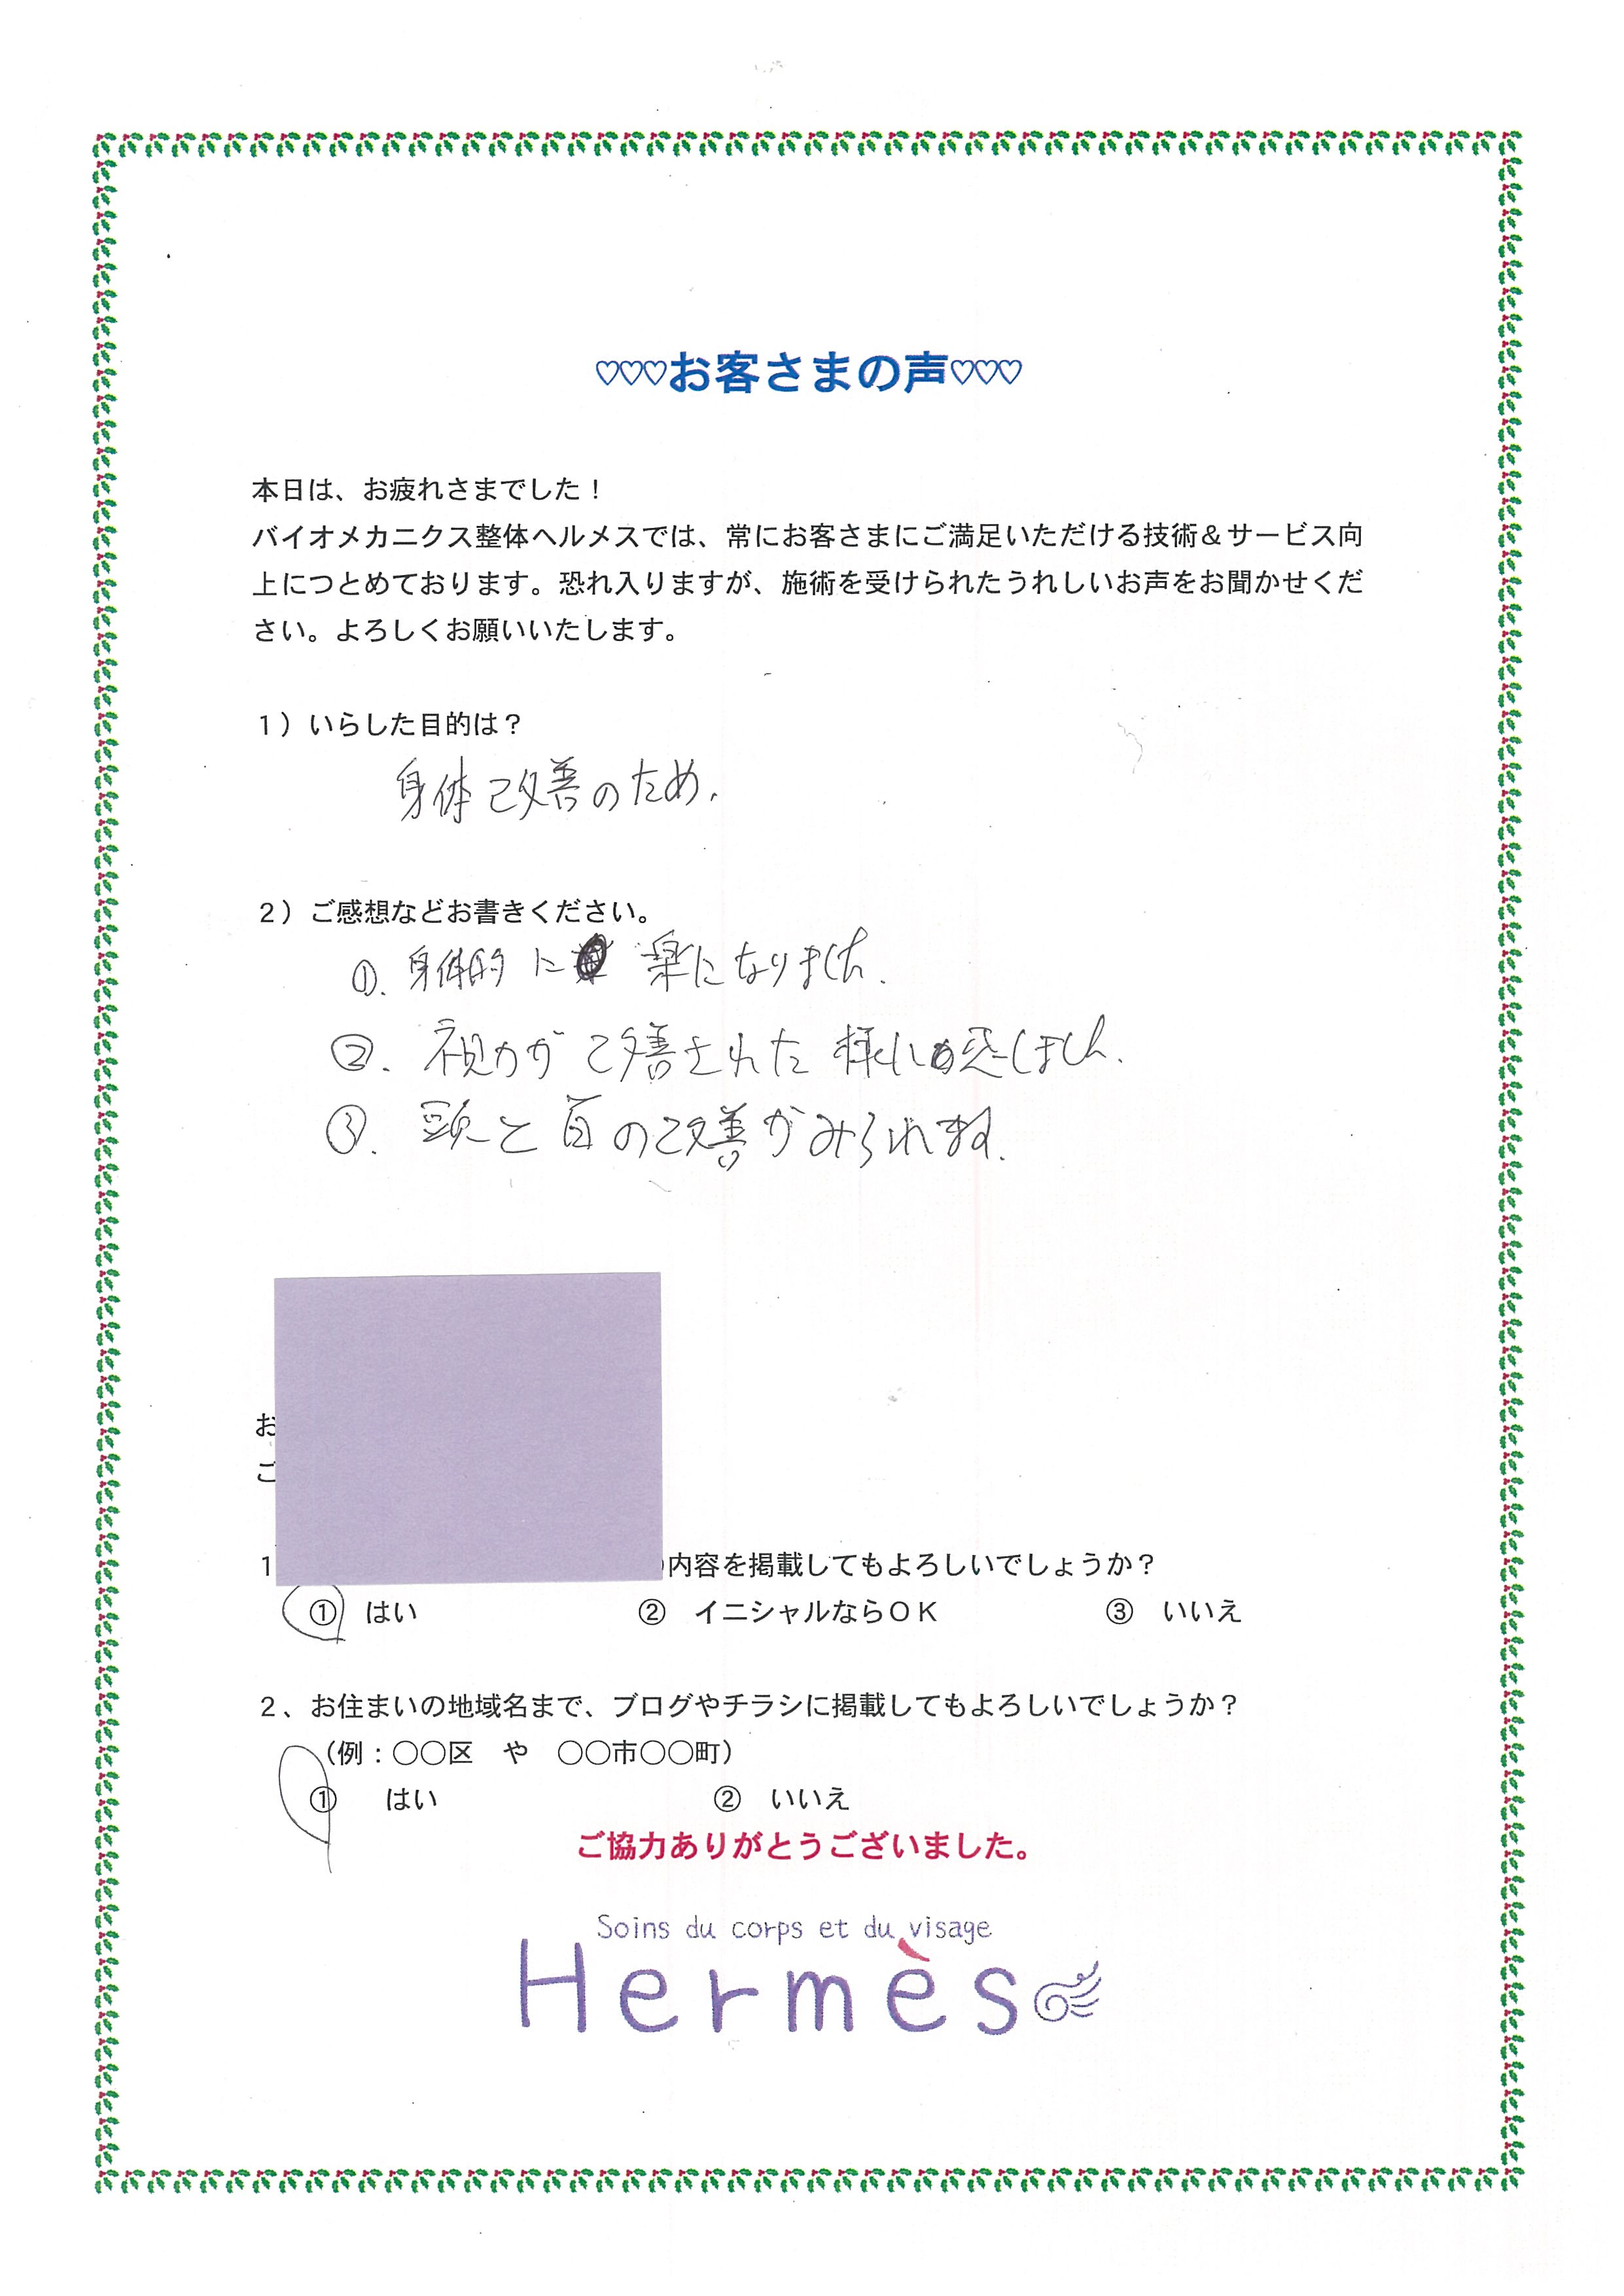 ♡♡♡お客さまの声♡♡♡
本日は、お疲れさまでした！
バイオメカニクス整体ヘルメスでは、常にお客さまにご満足いただける技術＆サービス向
上につとめております。恐れ入りますが、施術を受けられたうれしいお声をお聞かせくだ
さい。よろしくお願いいたします。
１）いらした目的は？
身体改善のため.
２）ご感想などお書きください。
①. 身体的に 楽になりました.
②. 視力が改善された様に感じました.
③. 頭と首の改善がみられます.
お
ご
1 内容を掲載してもよろしいでしょうか？
① はい ② イニシャルならＯＫ ③ いいえ
２、お住まいの地域名まで、ブログやチラシに掲載してもよろしいでしょうか？
（例：〇〇区 や 〇〇市〇〇町）
① はい ② いいえ
ご協力ありがとうございました。
Soins du corps et du visage
Hermès